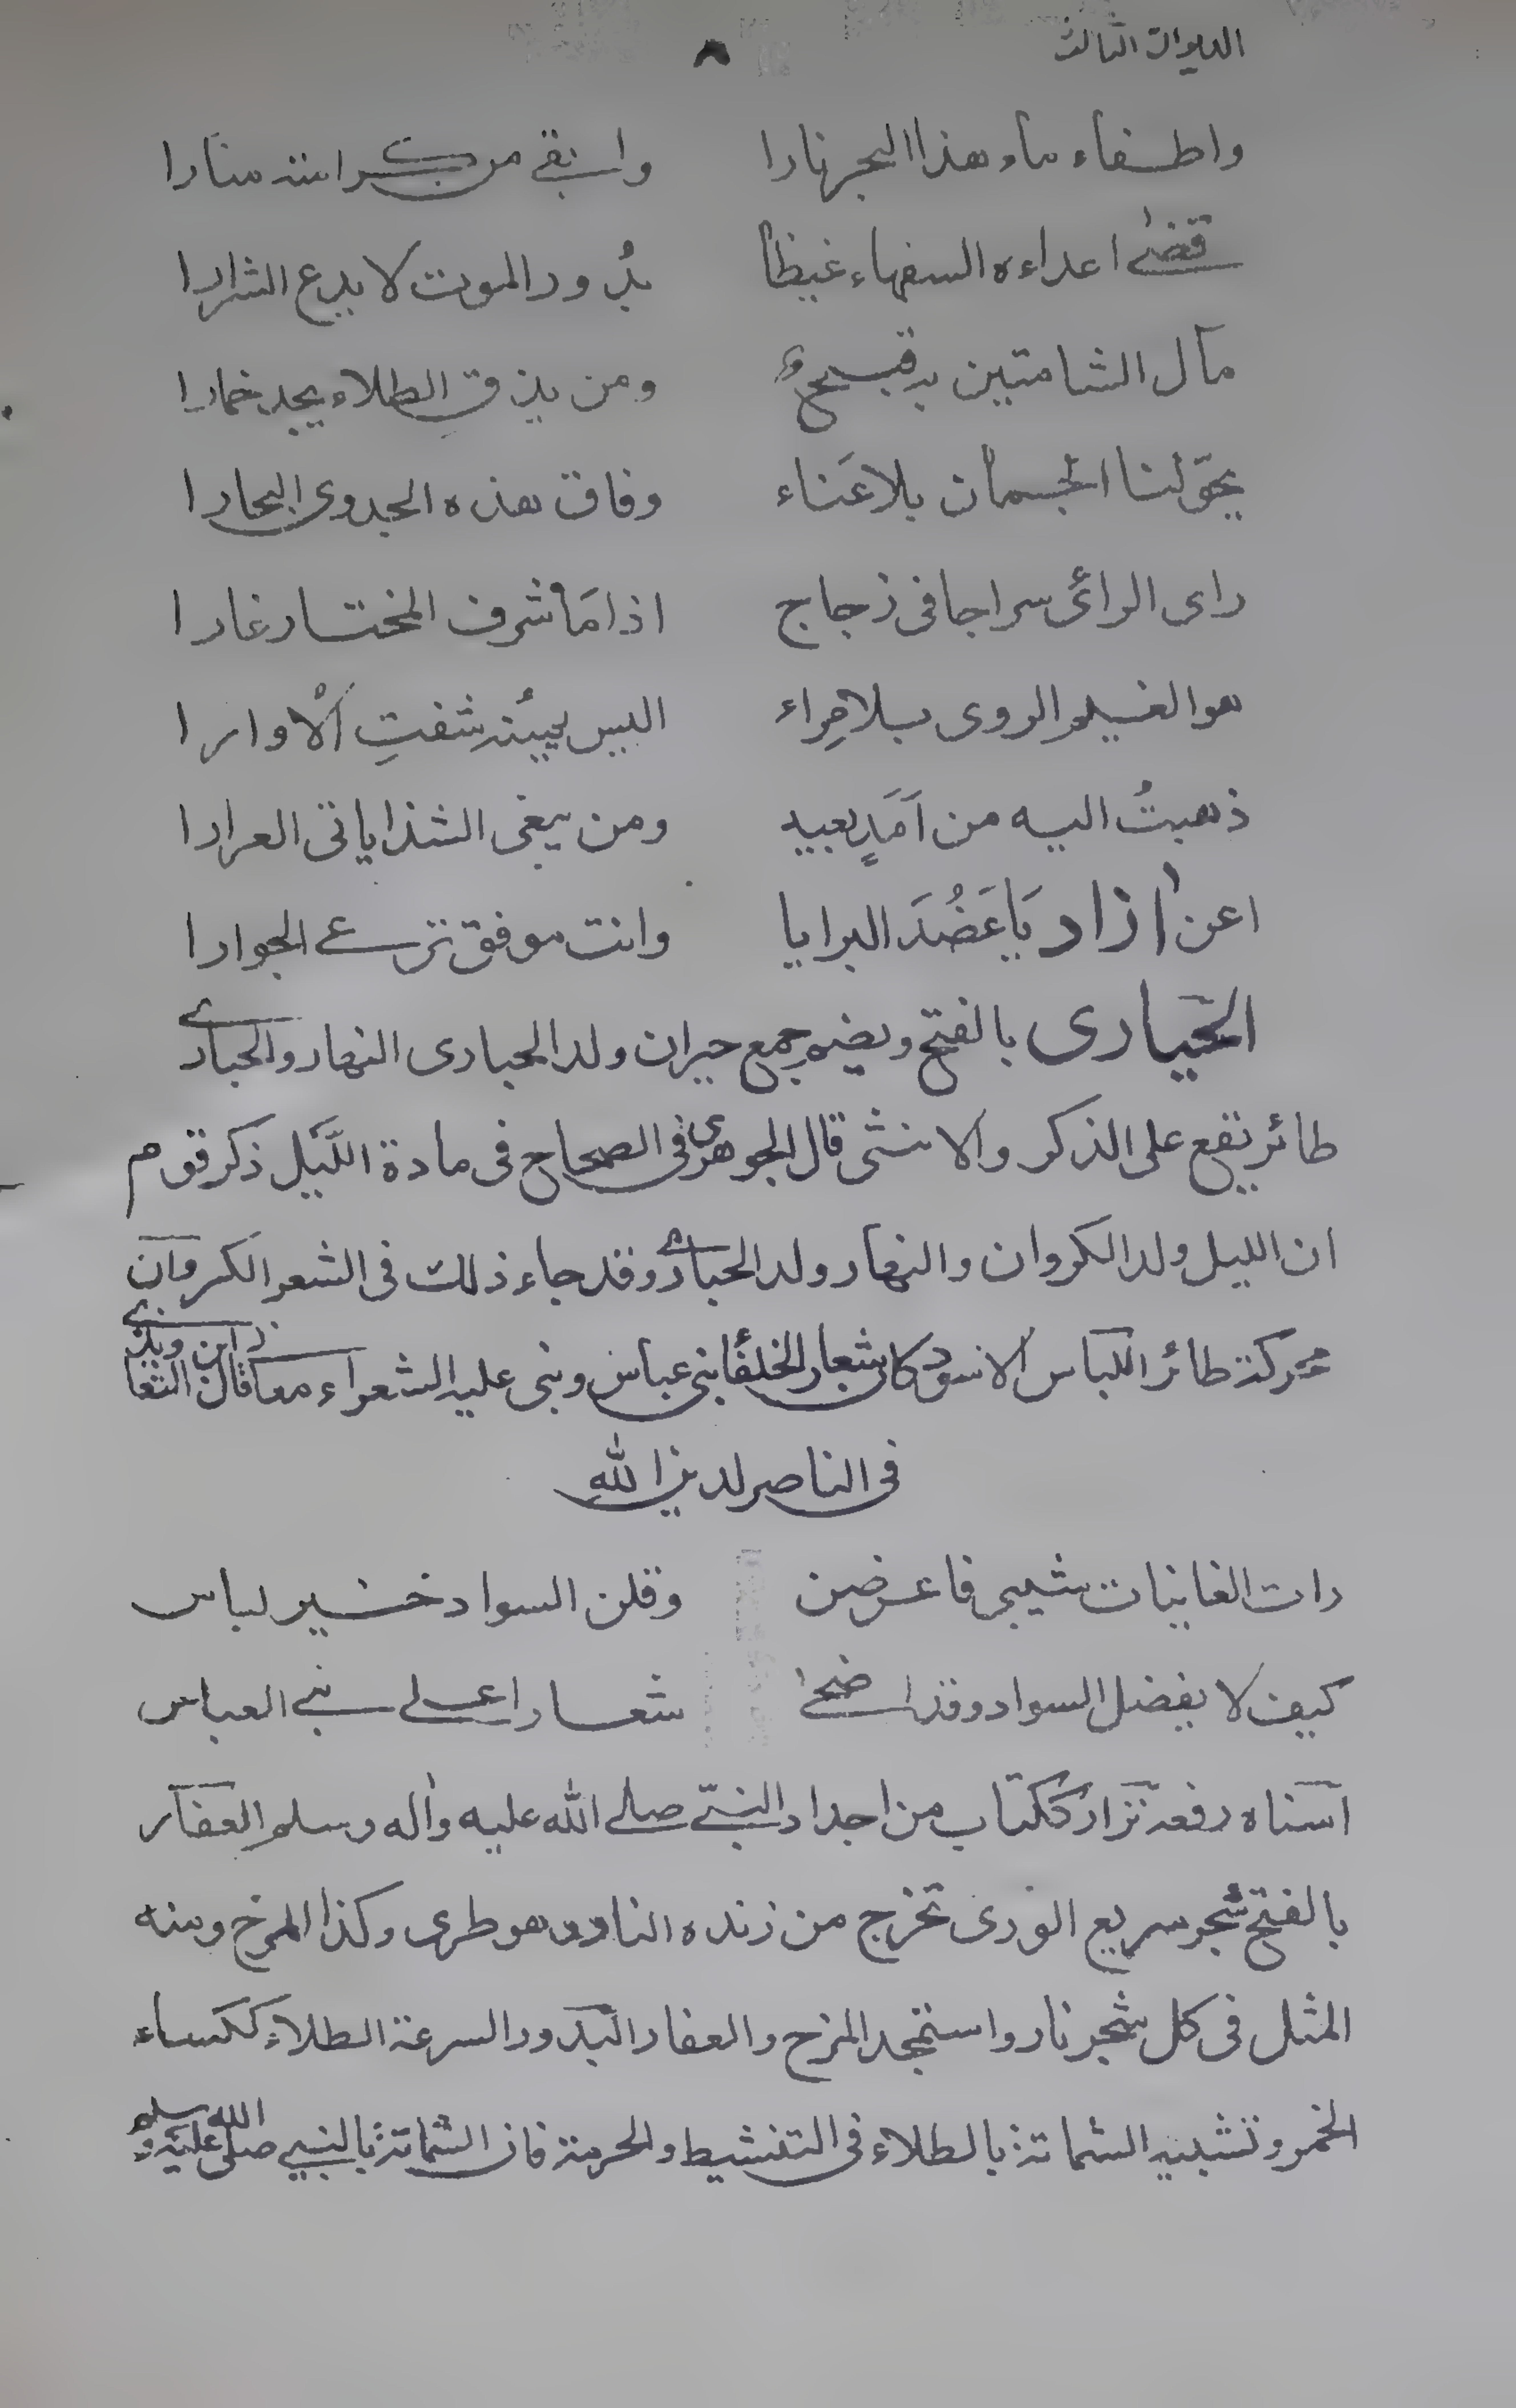 الديوان الثالث ٨
واطفاء ماء هذا البحر نارا وابقى من كرامته منارا
قضى اعداءه السفهاء غيظا بدور الموت لا يدع الشرارا
مآل الشامتين به قبيح ومن يذق الطلاء يجد خمارا
لنا الجسمان بلا عَناء وفاق هذه الجدوى البحارا
راى الرائى سراجا فى زجاج اذا مَا شرف المختار غارا
هو الغيم الروى بلا مِراء اليس يمينه شفتِ الأوارا
ذهبتُ اليه من اَمَدٍ بعيد ومن يبغى الشذا ياتى العرارا
اعن ازاد يَا عَضُدَ البرايا وانت موفق ترعى الجوارا
الحَيارى بالفتح ويضم جمع حيران ولد الحبارى النهار والحبارى
طائر يقع على الذكر والانثى قال الجوهرى فى الصحاح فى مادة اللّيل ذكر قوم
ان الليل ولد الكروان والنهار ولد الحبارى وقد جاء ذلك فى الشعر الكروان
محركة طائر اللباس الاسود كان شعار الخلفا بنى عباس وبنى عليه الشعراء معا قال ابن
فى الناصر لدين الله
رات الغانيات شيبى فاعرضن وقلن السواد خير لباس
كيف لا يفضل السواد وقد اضحى شعارا على بنى العباس
اسناه رفعه نزار ككتاب من اجداد النبىّ صلى الله عليه واٰله وسلم العفار
بالفتح شجر سريع الورى تخرج من زنده النار وهو طرى وكذا المرخ ومنه
المثل فى كل شجر نار واستمجد المرخ والعفار البدور السرعة الطلاء ككساء
الخمر وتشبيه الشماتة بالطلاء فى التنشيط والحرمة فان الشماتة بالنبى صلى الله عليه وسلم